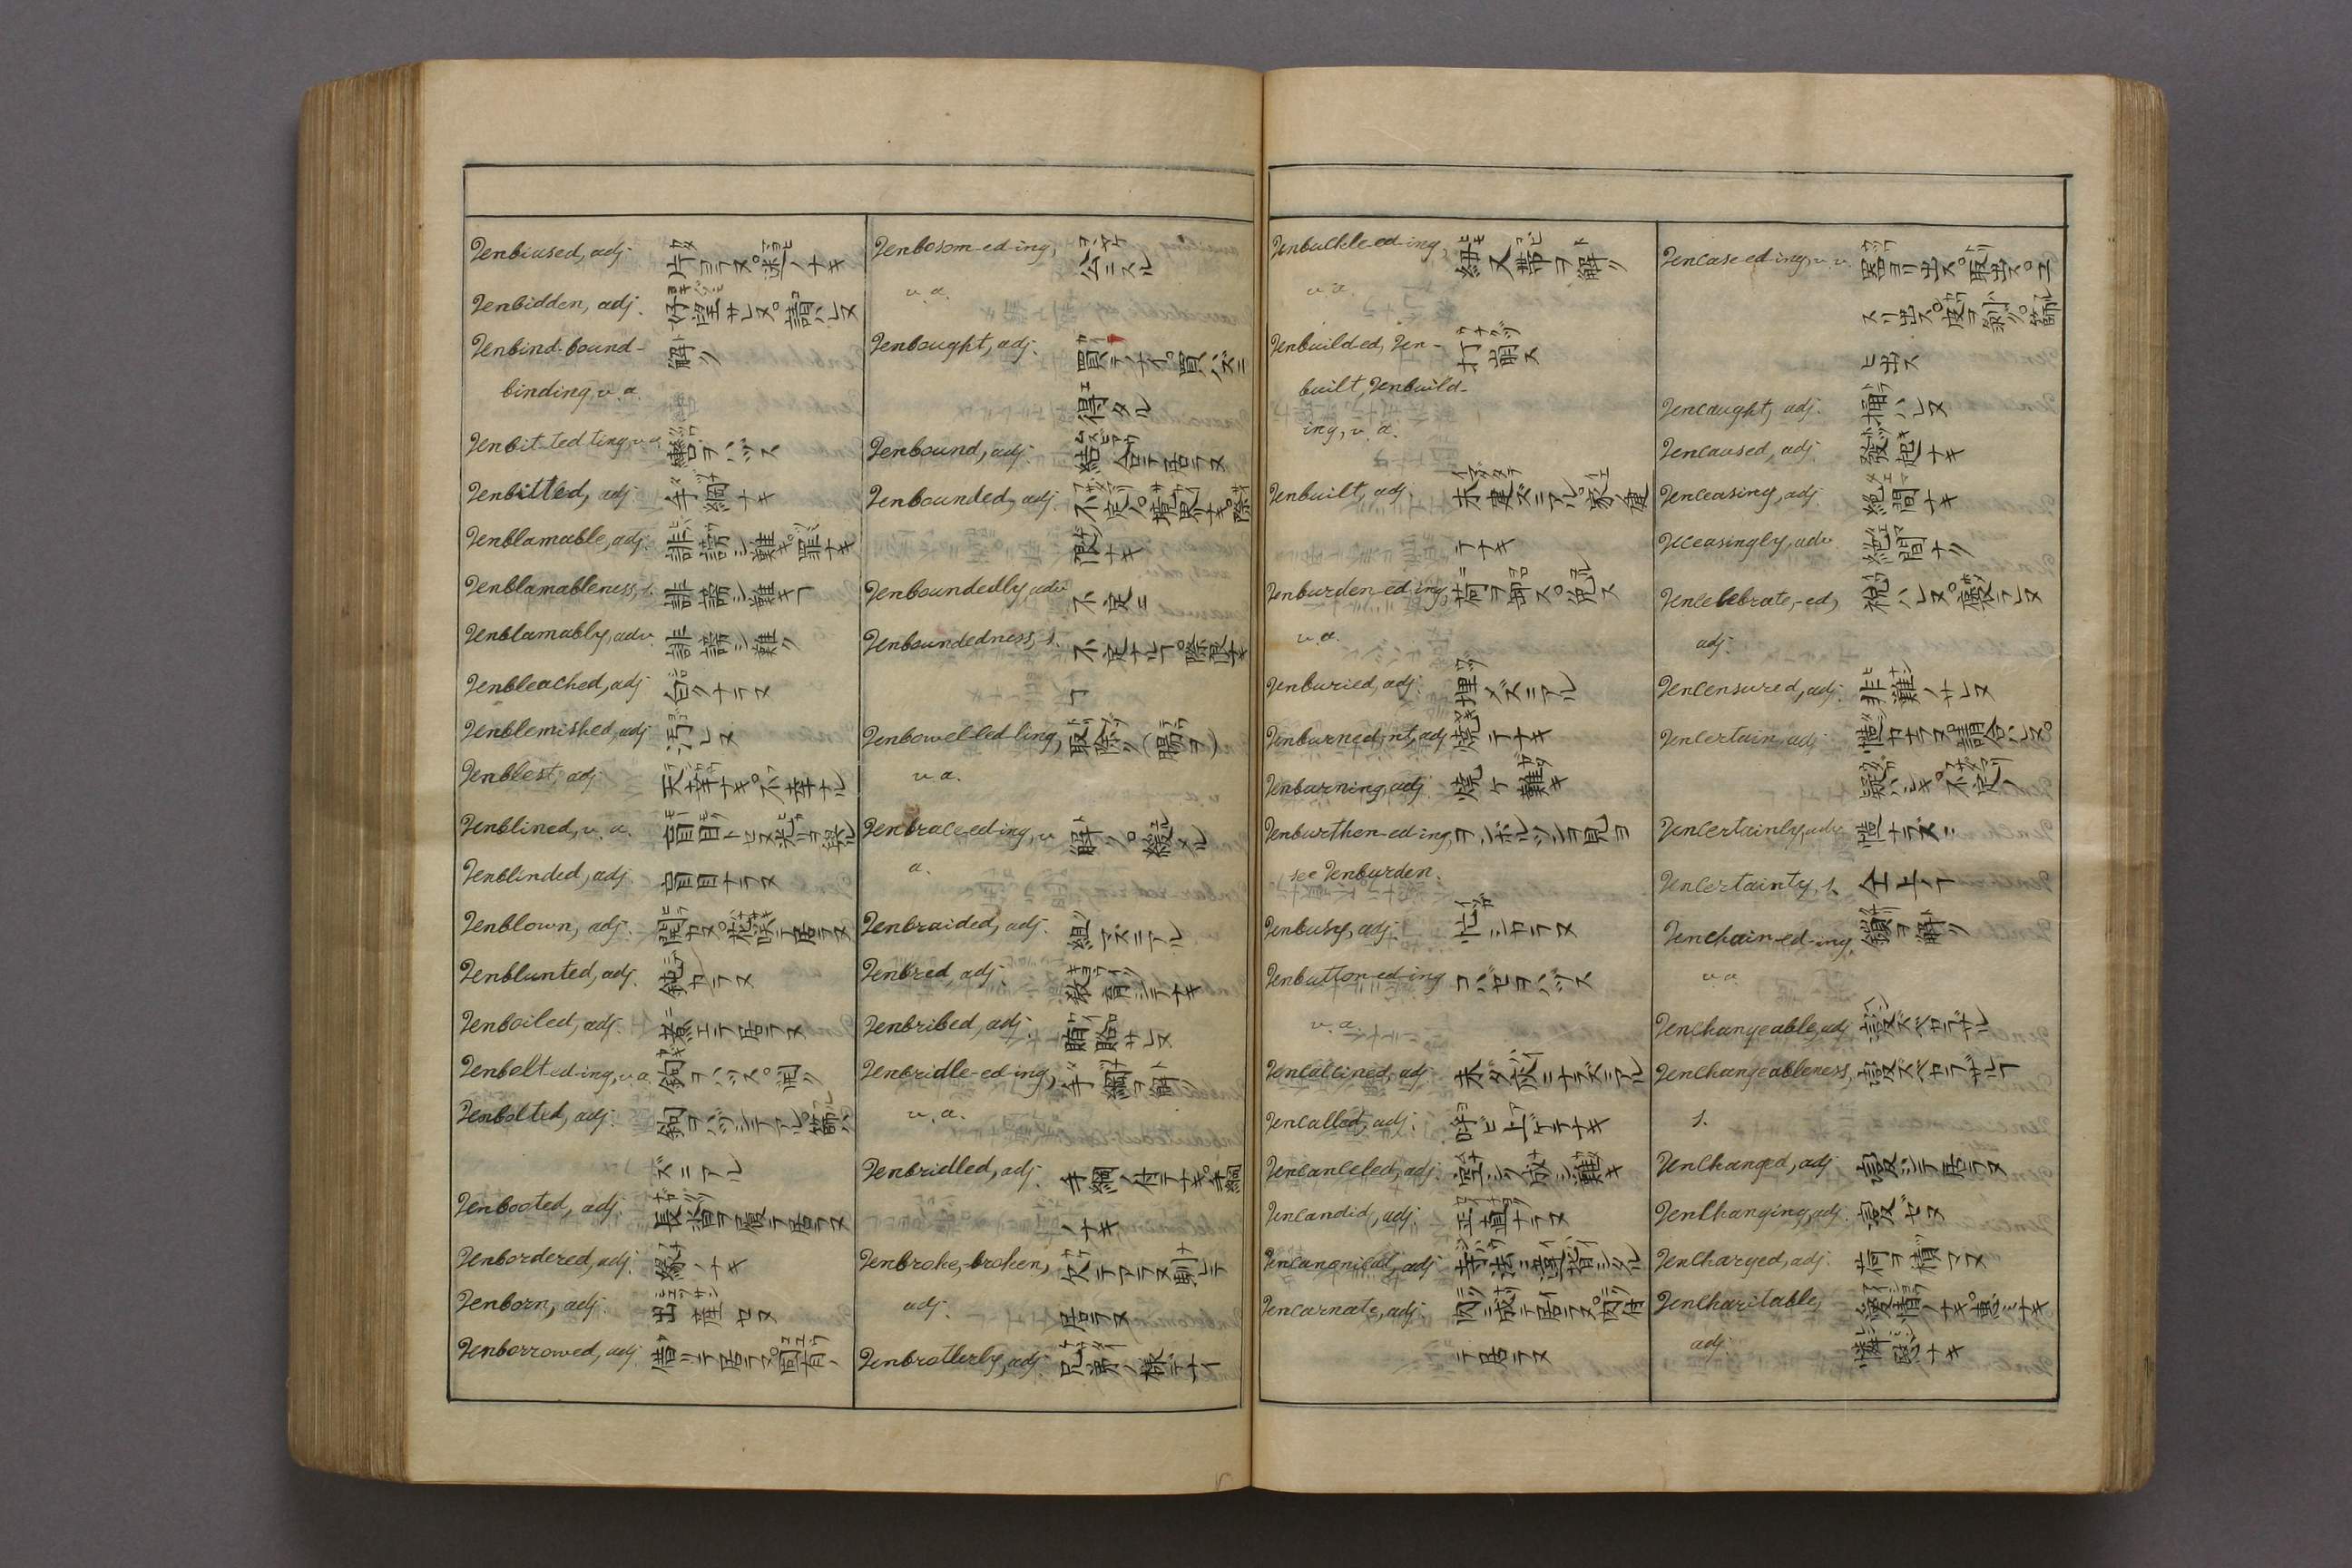 Unbiased, adj. 片ヨラヌ。迷ノナキ
Unbidden, adj. 好望サレヌ。請ハレヌ
Unbind-bound- 解ク
binding, v. a.
Unbit-ted-ting, v. a. 轡ヲハヅス
Unbitted, adj. 手綱ナキ
Unblamable, adj. 誹謗シ難キ。罪ナキ
Unblamableness, s. 誹謗シ難キヿ
Unblamably, adv. 誹謗シ難ク
Unbleached, adj. 白クナラヌ
Unblemished, adj. 汚レヌ
Unblest, adj. 天幸ナキ。不幸ナル
Unblined, v. a.
Unblinded, adj. 盲目ナラヌ
Unblown, adj. 開カヌ。花咲テ居ラヌ
Unblunted, adj. 鈍カラヌ
Unboiled, adj. 煮エテ居ラヌ
Unbolt-ed-ing, v. a. 鉤ヲハヅス。開ク
Unbolted, adj. 鉤ヲハヅシテアル。篩ハ
ズニアル
Unbooted, adj. 長沓ヲ履テ居ラヌ
Unbordered, adj. 縁ノナキ
Unborn, adj. 出産セヌ
Unborrowed, adj. 借リテ居ラヌ。固有ノ
Unbosom-ed-ing, 公ニスル
v. a.
Unbought, adj. 買テナイ。買ハズニ
得タル
Unbound, adj. 結合テ居ラヌ
Unbounded, adj. 不定ノ。境界ナキ。際
限ナキ
Unboundedly, adv. 不定ニ
Unboundedness, s. 不定ナルヿ。際限ナキ
ヿ
Unbowel-led-ling, 取除ク(腸ヲ)
v. a.
Unbrace-ed-ing, v. 解ク。緩メル
a.
Unbraided, adj. 組マズニアル
Unbred, adj. 教育シテナキ
Unbribed, adj. 賄賂サレヌ
Unbridle-ed-ing, 手綱ヲ解ク
v. a.
Unbridled, adj. 手綱ノ付テナキ。手綱
ノナキ
Unbroke,-broken, 欠テアラヌ。馴レテ
adj. 居ラヌ
Unbrotherly, adj. 兄弟ノ様デナイ
Unbuckle-ed-ing, 紐又帯ヲ解ク
v. a.
Unbuilded, Un- 打崩ス
built, Unbuild-
ing, v. a.
Unbuilt, adj. 未建ズニアル。家ノ建
テナキ
Unburden-ed-ing, 荷ヲ卸ス。免ス
v. a.
Unburied, adj. 埋メズニアル
Unburned,nt, adj. 焼テナキ
Unburning, adj. 焼ケ難キ
Unburthen-ed-ing,
see Unburden.
Unbusy, adj. 忙シカラヌ
Unbutton-ed-ing コハゼヲハヅス
v. a.
Uncalcined, adj. 未ダ灰ニナラズニアル
Uncalled, adj. 呼ビ上ゲテナキ
Uncanceled, adj. 空シク成シ難キ
Uncandid, adj. 正直ナラヌ
Uncanonical, adj. 寺法ニ違背シタル
Uncarnate, adj. 肉ニ成テ居ラヌ。肉ノ付
テ居ラヌ
Uncase-ed-ing, v. a. 器ヨリ出ス。取出ス。エ
スリ出ス。皮ヲ剥ク。篩
ヒ出ス
Uncaught, adj. 捕ハレヌ
Uncaused, adj. 發起ナキ
Unceasing, adj. 絶間ナキ
Uceasingly, adv. 絶間ナク
Uncelebrate,-ed, 祝ハレヌ。
adj.
Uncensured, adj. 非難ノサレヌ
Uncertain, adj. 慥カナラヌ。請合ハレヌ。
疑ハシキ。不定ノ
Uncertainly, adv. 慥ナラズニ
Uncertainty, s. 仝上ノヿ
Unchain-ed-ing, 鎖ヲ解ク
v. a.
Unchangeable, adj. 変ズベカラザル
Unchangeableness, 変ズベカラザルヿ
s.
Unchanged, adj. 変ジテ居ラヌ
Unchanging, adj. 変ゼヌ
Uncharged, adj. 荷ヲ積マヌ
Uncharitable, 愛情ノナキ。恵ミナキ
adj. 憐愍ナキ